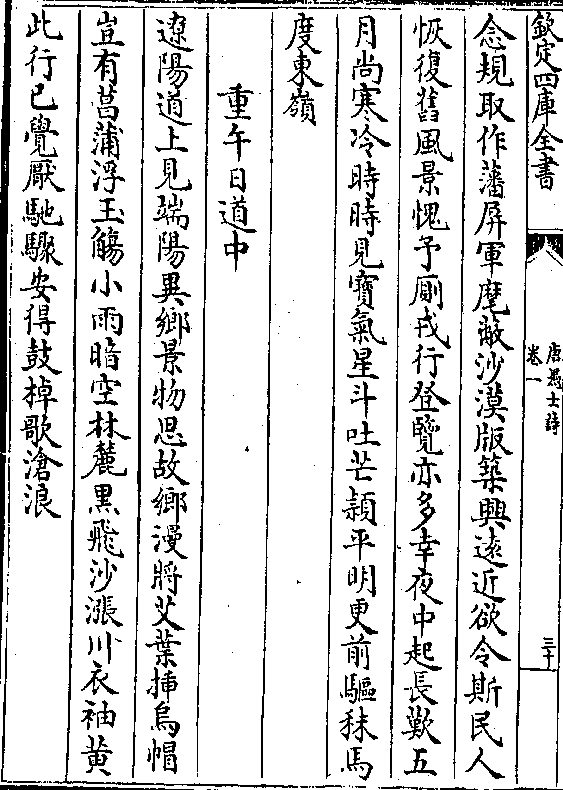 欽定四庫全書
唐愚士詩
卷一
三十
念規取作藩屏軍麾蔽沙漠版築興遠近欲令斯民人
恢復舊風景愧予厠戎行登覽亦多幸夜中起長歎五
月尚寒冷時時見寶氣星斗吐芒熲平明更前驅秣馬
度東嶺
重午日道中
遼陽道上見端陽異鄉景物思故鄉漫將艾葉挿烏帽
豈有菖蒲浮玉觴小雨暗空林麓黒飛沙漲川衣袖黄
此行已覺厭馳驟安得鼓棹歌滄浪